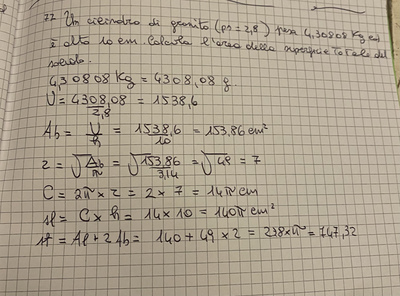 77 Un cilindro di granito (ps = 2,8) pesa 4,30808 Kg ed
è alto 10 cm. Calcola l'area della superficie totale del
solido.
4,30808 Kg = 4308,08 g
V = 4308,08 / 2,8 = 1538,6
Ab = V / h = 1538,6 / 10 = 153,86 cm²
r = √Ab / π = √153,86 / 3,14 = √49 = 7
C = 2π × r = 2 × 7 = 14π cm
Al = C × h = 14 × 10 = 140π cm²
At = Al + 2 Ab = 140 + 49 × 2 = 238 × π = 747,32